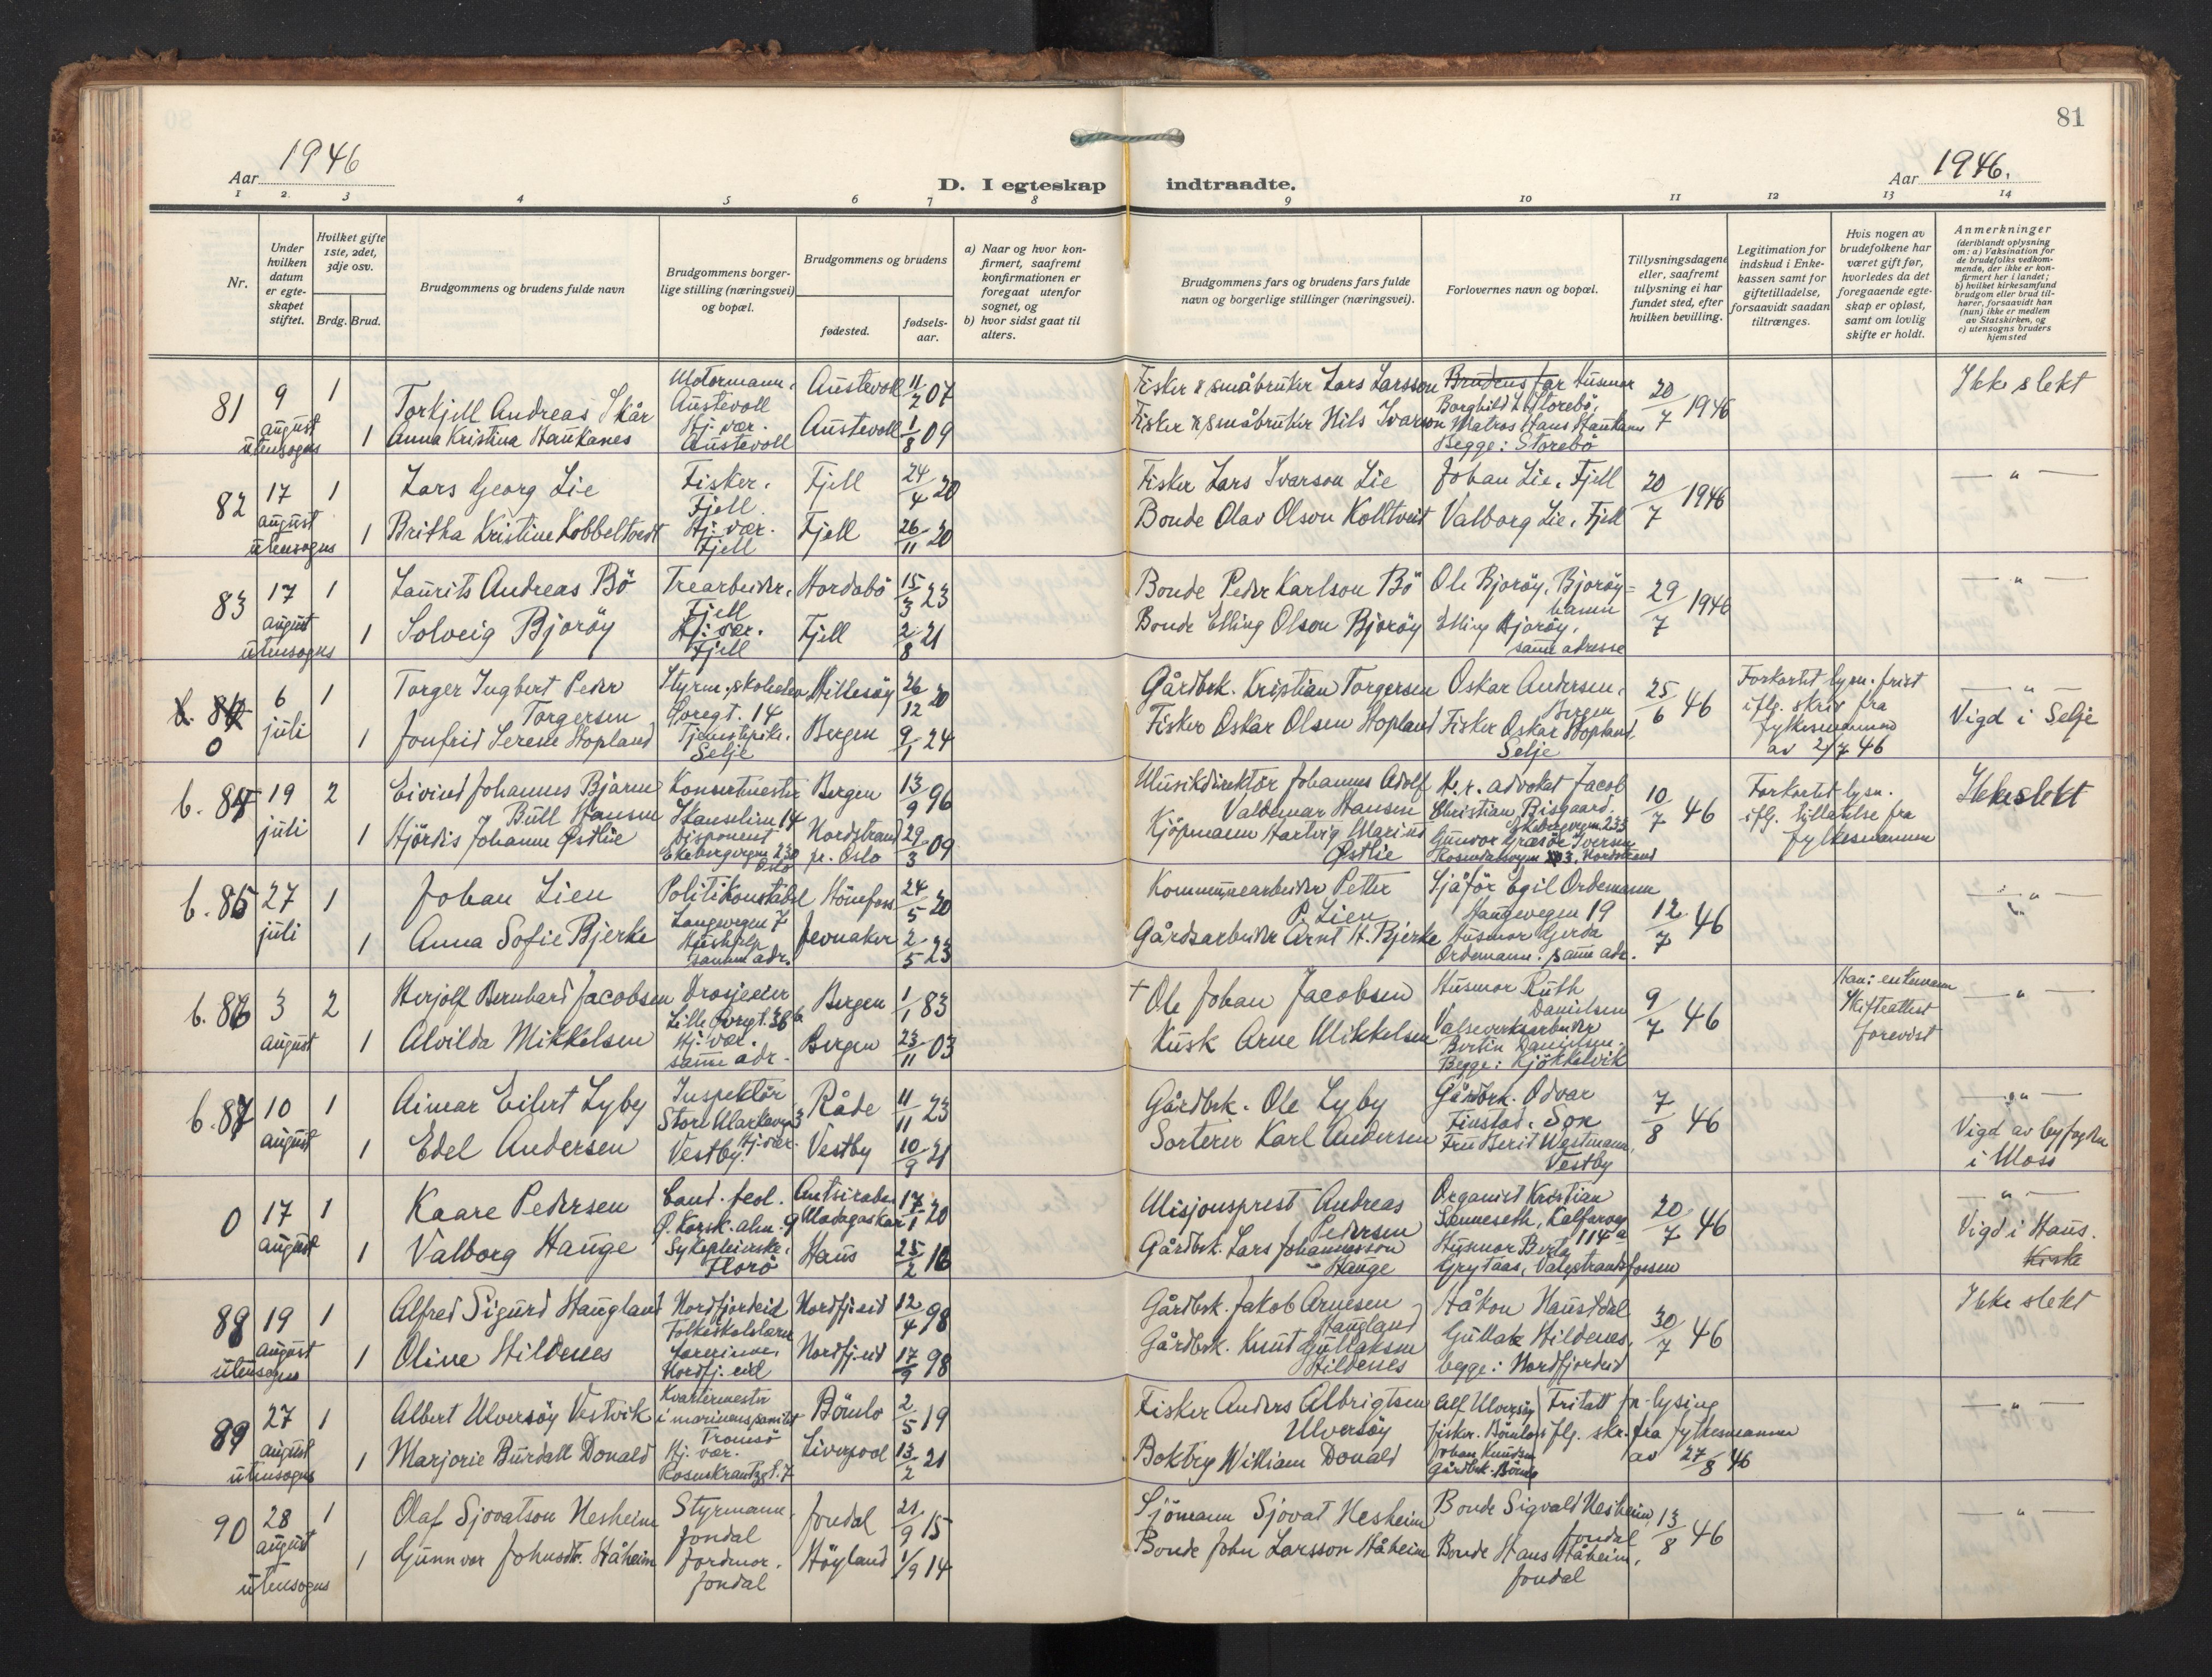 81
Aar 1946
D. I egteskap indtraadte.
Aar 1946.
1 2. 3 4 5 6 7 8 9 10 11 12 13 14
Nr.
Under hvilken datum er egte-skapet stiftet.
Hvilket gifte 1ste, 2det, 3dje osv.
Brdg. Brud.
Brudgommens og brudens fulde navn
Brudgommens borger-lige stilling (næringsvei) og bopæl.
Brudgommens og brudens
fødested.
fødsels-aar.
a) Naar og hvor kon-firmert, saafremt konfirmationen er foregaat utenfor sognet, og
b) hvor sidst gaat til alters.
Brudgommens fars og brudens fars fulde navn og borgerlige stillinger (næringsvei).
Forlovernes navn og bopæl.
Tillysningsdagene eller, saafremt tillysning ei har fundet sted, efter hvilken bevilling.
Legitimation for indskud i Enke-kassen samt for giftetilladelse, forsaavidt saadan tiltrænges.
Hvis nogen av brudefolkene har været gift før, hvorledes da det foregaaende egte-skap er opløst, samt om lovlig skifte er holdt.
Anmerkninger
(deriblandt oplysning om: a) Vaksination for de brudefolks vedkom-mende, der ikke er kon-firmert her i landet; b) hvilket kirkesamfund brudgom eller brud til-hører, forsaavidt han (hun) ikke er medlem av Statskirken, og c) utensogns bruders hjemsted
81 9 august utensogns 1 Torkjell Andreas Skår Motormann, Austevoll Austevoll 11/2 07 Fisker & småbruker Lars Larsson Brudens far Husmor Borghild L. Storebö, 20/7 1946 Ikke slekt
1 Anna Kristina Haukanes Hj. vær. Austevoll Austevoll 1/8 09 Fisker & småbruker Nils Ivarson Matros Hans Haukanes Begge: Storebö
82 17 august utensogns 1 Lars Georg Lie Fisker. Fjell. Fjell 24/4 20 Fisker Lars Ivarson Lie Johan Lie, Fjell 20/7 1946 — " —
1 Britha Kristine Kobbeltvedt Hj. vær. Fjell Fjell 26/11 20 Bonde Olav Olson Kolltveit Valborg Lie, Fjell
83 17 august utensogns 1 Laurits Andreas Bö Trearbeider, Fjell Hordabö 15/3 23 Bonde Peder Karlson Bö Ole Bjoröy, Bjoröyhamn 29/7 1946 — " —
1 Solveig Bjoröy Hj. vær. Fjell Fjell 2/8 21 Bonde Elling Olson Bjoröy Elling Bjoröy, samme adresse
0 6 juli 1 Torger Ingbert Peder Torgersen Styrm.skoleelev Hillesöy 26/12 20 Gårdbrk. Kristian Torgersen Oskar Andersen, Bergen 25/6 46 Forkortet lysn. frist iflg. skriv fra fylkesmannen av 2/7 46 — " — Vigd i Selje
1 Jonfrid Serene Hopland Tjenestepike. Selje Bergen 9/1 24 Fisker Oskar Olsen Hopland Fisker Oskar Hopland, Selje
b. 84 19 juli 2 Eivind Johannes Bjarne Büll Hansen Konsertmester Bergen 13/9 96 Musikdirektör Johannes Adolf Valdemar Hansen H.r. advokat Jacob Christian Bisgaard. Ekebergvegen 235 10/7 46 Forkortet lysn. iflg. tillatelse fra fylkesmannen Ikke slekt
1 Hjördis Johanne Østlie Disponent Ekebergvegen 230 Oslo Nordstrand pr. Oslo 29/3 09 Kjöpmann Hartvig Marius Østlie Gunvor Græsöe Iversen
b. 85 27 juli 1 Johan Lien Politikonstabel Langvegen 7 Hönefoss 24/5 20 Kommunearbeider Petter P. Lien Sjåför Egil Ordemann Haugevegen 19 12/7 46 — " —
1 Anna Sofie Bjerke Hushjelp samme adr. Jevnaker 2/5 23 Gårdsarbeider Arnt H. Bjerke Husmor Gerda Ordemann: samme adr.
b. 86 3 august 2 Herjolf Bernhard Jacobsen Drosjeeier Bergen 1/1 83 † Ole Johan Jacobsen Husmor Ruth Danielsen 9/7 46 Han: enkemann Skifteattest forevist — " —
1 Alvilda Mikkelsen Hj. vær. samme adr. Bergen 23/11 03 Kusk Arne Mikkelsen Valseverksarbeider Bertin Danielsen. Begge: Kjökkelvik
b. 87 10 august 1 Aimar Eilert Lyby Inspektör Store Markevei 3 Råde 11/11 23 Gårdbrk. Ole Lyby Gårdbrk. Odvar Finstad, Son 7/8 46 — " — Vigd av byfogden i Moss
1 Edel Andersen Hj. vær. Vestby. Vestby 10/9 21 Sorterer Karl Andersen Fru Berit Wastmann, Vestby
0 17 august 1 Kaare Pedersen Cand. teol. Ø. Korsk. alm. 9 Antsirabe Madagaskar 17/1 20 Misjonsprest Andreas Pedersen Organist Kristian Senneseth, Kalfarvei 114 a 20/7 46 — " — Vigd i Haus. Kirke
1 Valborg Hauge Sykepleierske. Florö Haus 25/2 16 Gårdbrk. Lars Johannesson Hauge Husmor Berta Grytaas, Valestrandsfossen
88 19 august utensogns 1 Alfred Sigurd Haugland Nordfjordeid Folkeskolelærer Nordfj.eid 12/4 98 Gårdbrk. Jakob Arnesen Haugland Håkon Hausdal 30/7 46 Ikke slekt
1 Oline Hildenes Lærerinne. Nordfj. eid Nordfj.eid 17/9 98 Gårdbrk. Knut Gullaksen Hildenes Gullak Hildenes, begge: Nordfjordeid
89 27 august utensogns 1 Albert Ulversöy Vestvik Kvartermester Tromsö Bömlo 2/5 19 Fisker Anders Albrigtsen Ulversöy Alf Ulversöy fisker. Bömlo Fritatt fr. lysing iflg. skr. fra fylkesmannen av 27/8 46 — " —
1 Marjorie Burdall Donald Hj. vær. Rosenkrantzgt. 7 Liverpool 13/2 21 Boktry William Donald Johan Knudsen Gårdbrk. Bömlo
90 28 august utensogns 1 Olaf Sjovatson Nesheim Styrmann, Jondal Jondal 21/9 15 Sjömann Sjovat Nesheim Bonde Sigvald Nesheim, Jondal 13/8 46 — " —
1 Gunnvor Johnsdtr. Håheim Jordmor. Jondal Höyland 1/9 14 Bonde John Larsson Håheim Bonde Hans Håheim, Jondal